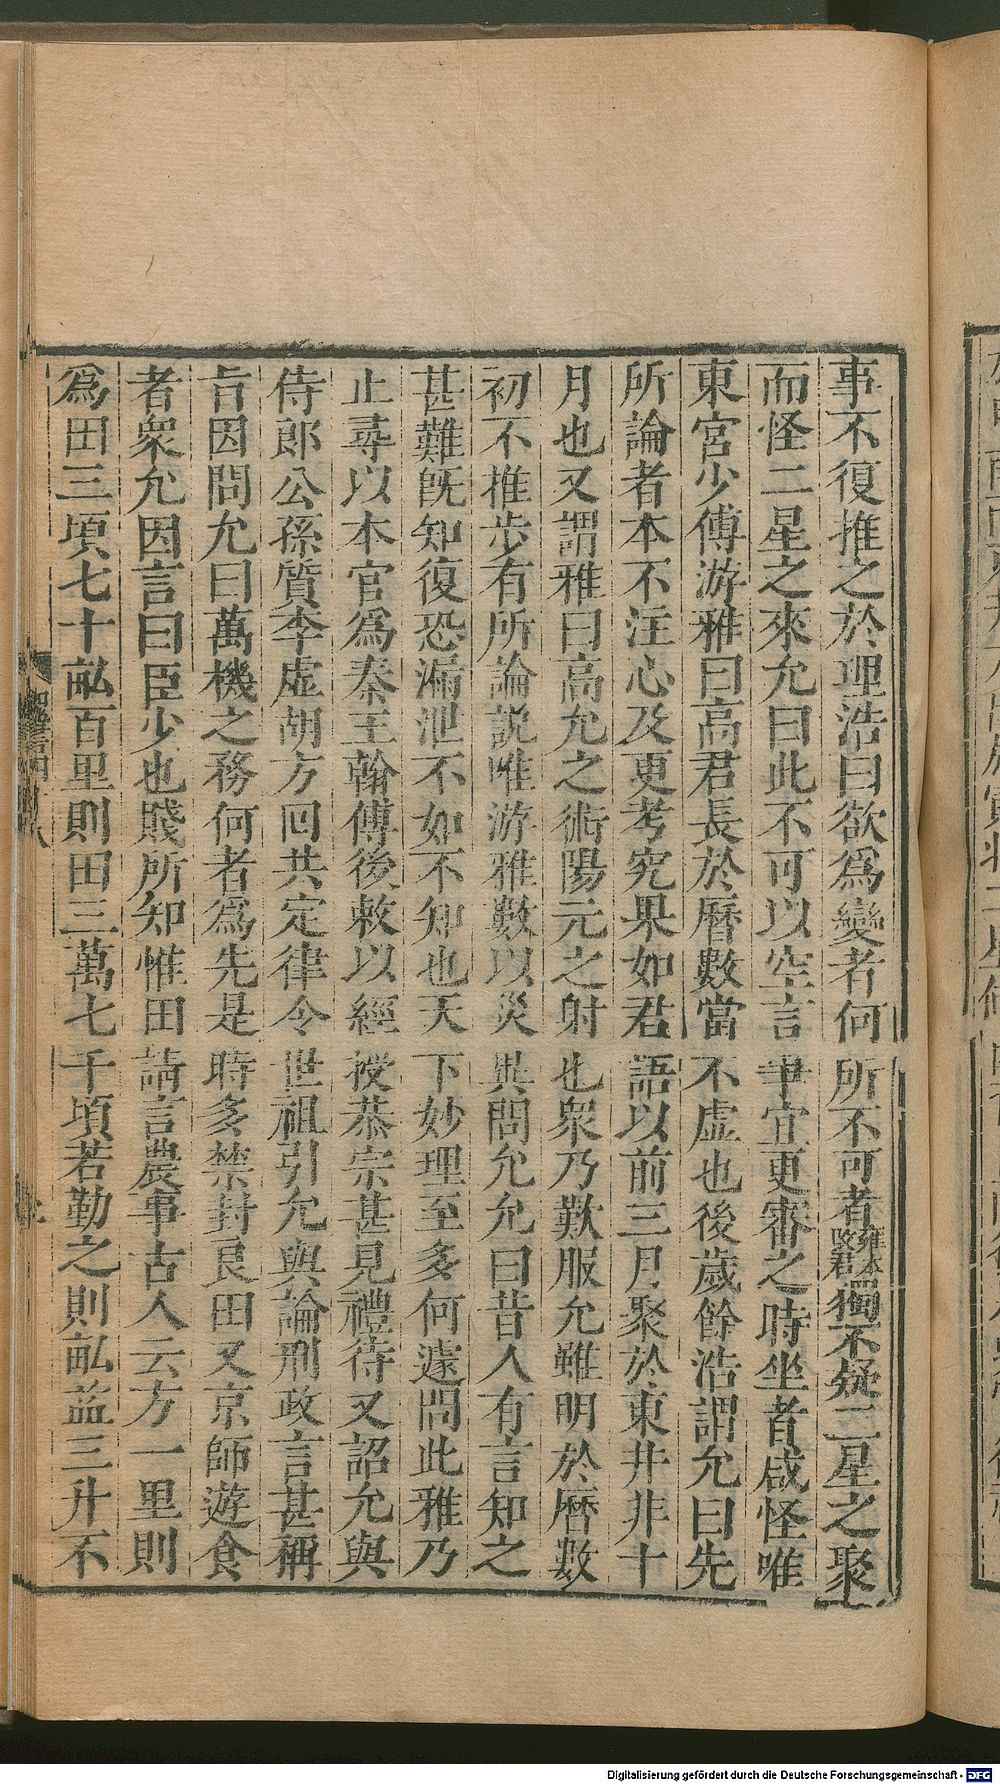 事不復推之於理浩曰欲爲變者何所不可者雍本改君獨不疑二星之聚
而怪二星之來允曰此不可以空言爭宜更審之時坐者咸怪唯
東宮少傅游雅曰高君長於曆數當不虛也後歲餘浩謂允曰先
所論者本不注心及更考究果如君語以前三月聚於東井非十
月也又謂雅曰高允之術陽元之射也衆乃歎服允雖明於曆數
初不推步有所論説唯游雅數以災異問允允曰昔人有言知之
甚難旣知復恐漏泄不如不知也天下妙理至多何遽問此雅乃
止尋以本官爲秦王翰傅後敕以經授恭宗甚見禮待又詔允與
侍郎公孫質李虛胡方回共定律令世祖引允與論刑政言甚稱
旨因問允曰萬機之務何者爲先是時多禁封良田又京師遊食
者衆允因言曰臣少也賤所知惟田請言農事古人云方一里則
爲田三頃七十畝百里則田三萬七千頃若勤之則畝益三升不
Digitalisierung gefördert durch die Deutsche Forschungsgemeinschaft - DFG